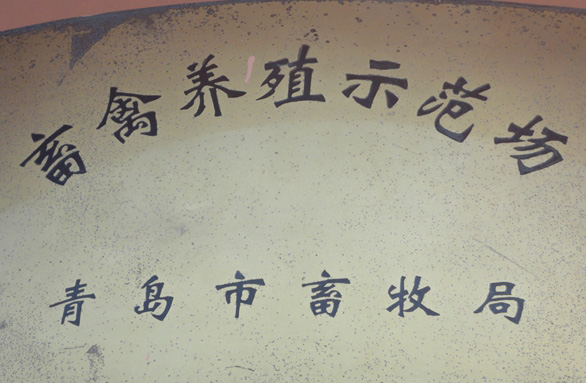 畜禽养殖示范场
青岛市畜牧局